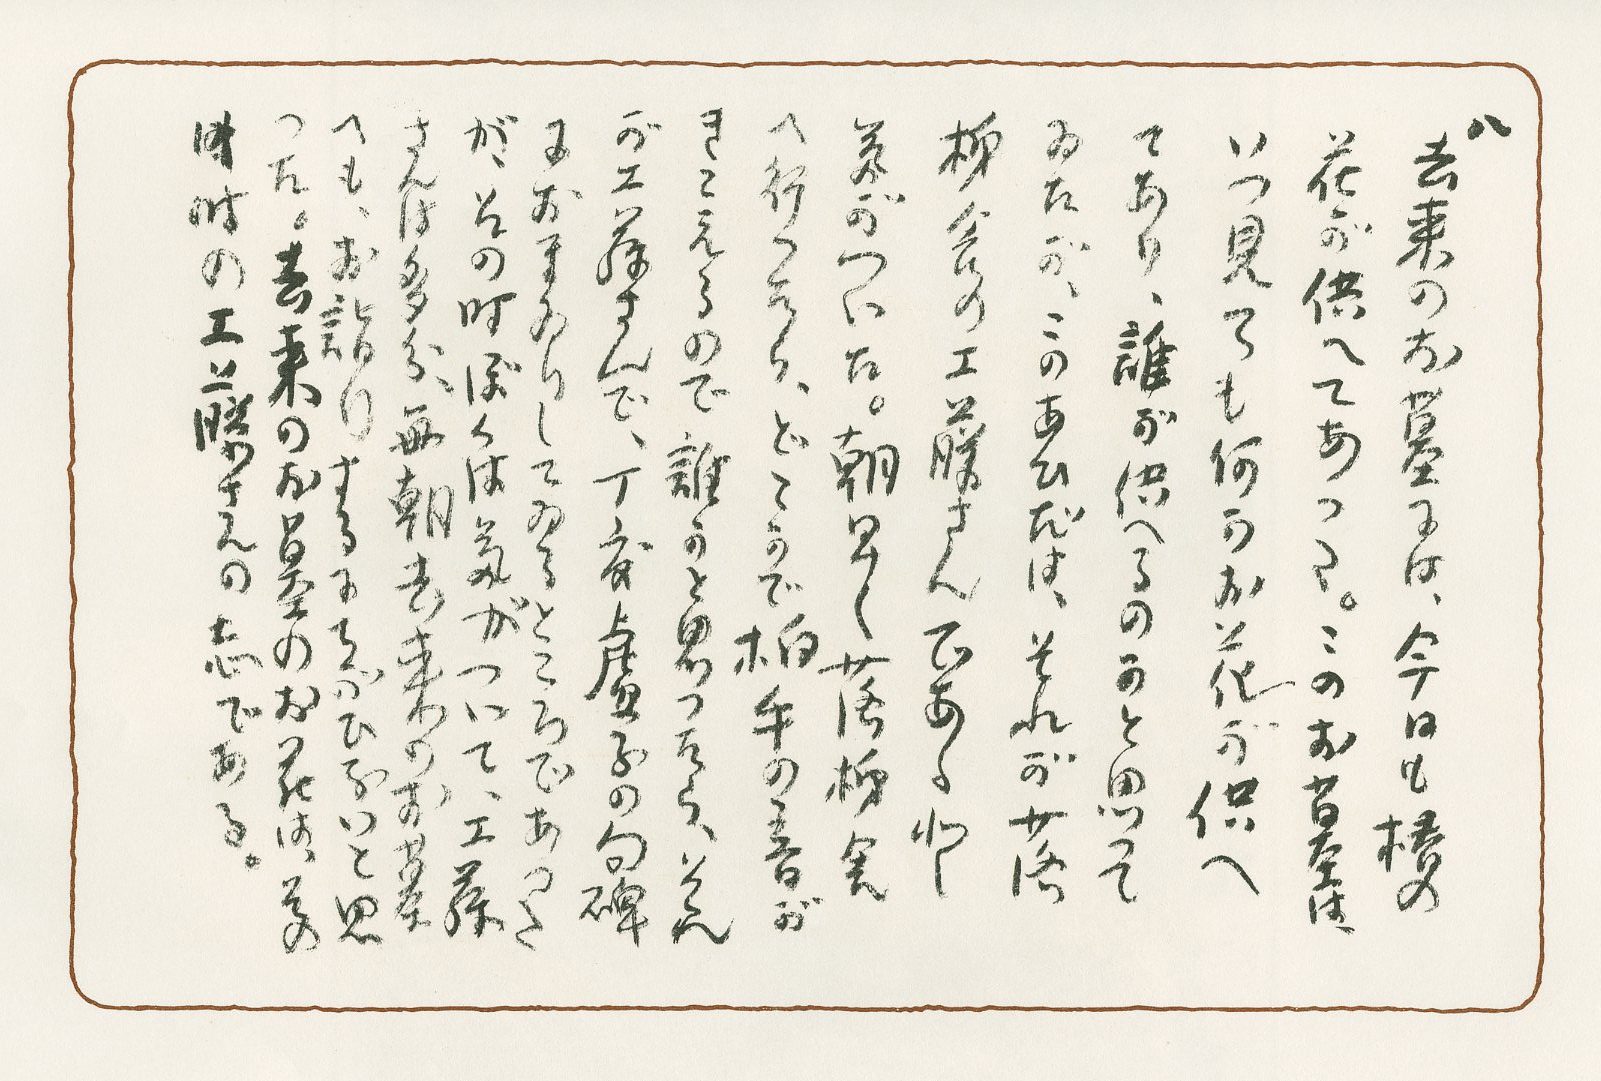 八
去来のお墓には、今日も椿の
花が供へてあつた。このお墓は
いつ見ても何かお花が供へ
てあり、誰が供へるのかと思つて
ゐたが、このあひだは、それが落
柿舎の工藤さんであるのに
気がついた。朝早く落柿舎
へ行つたら、どこかで柏手の音が
きこえるので誰かと思つたら、それ
が工藤さんで、丁度虚子の句碑
におまゐりしてゐるところであつた
が、その時ぼくは気がついて、工藤
さんは多分、毎朝去来のお墓
へも、お詣りするにちがひないと思
つた。去来のお墓のお花は、その
時の工藤さんの志である。